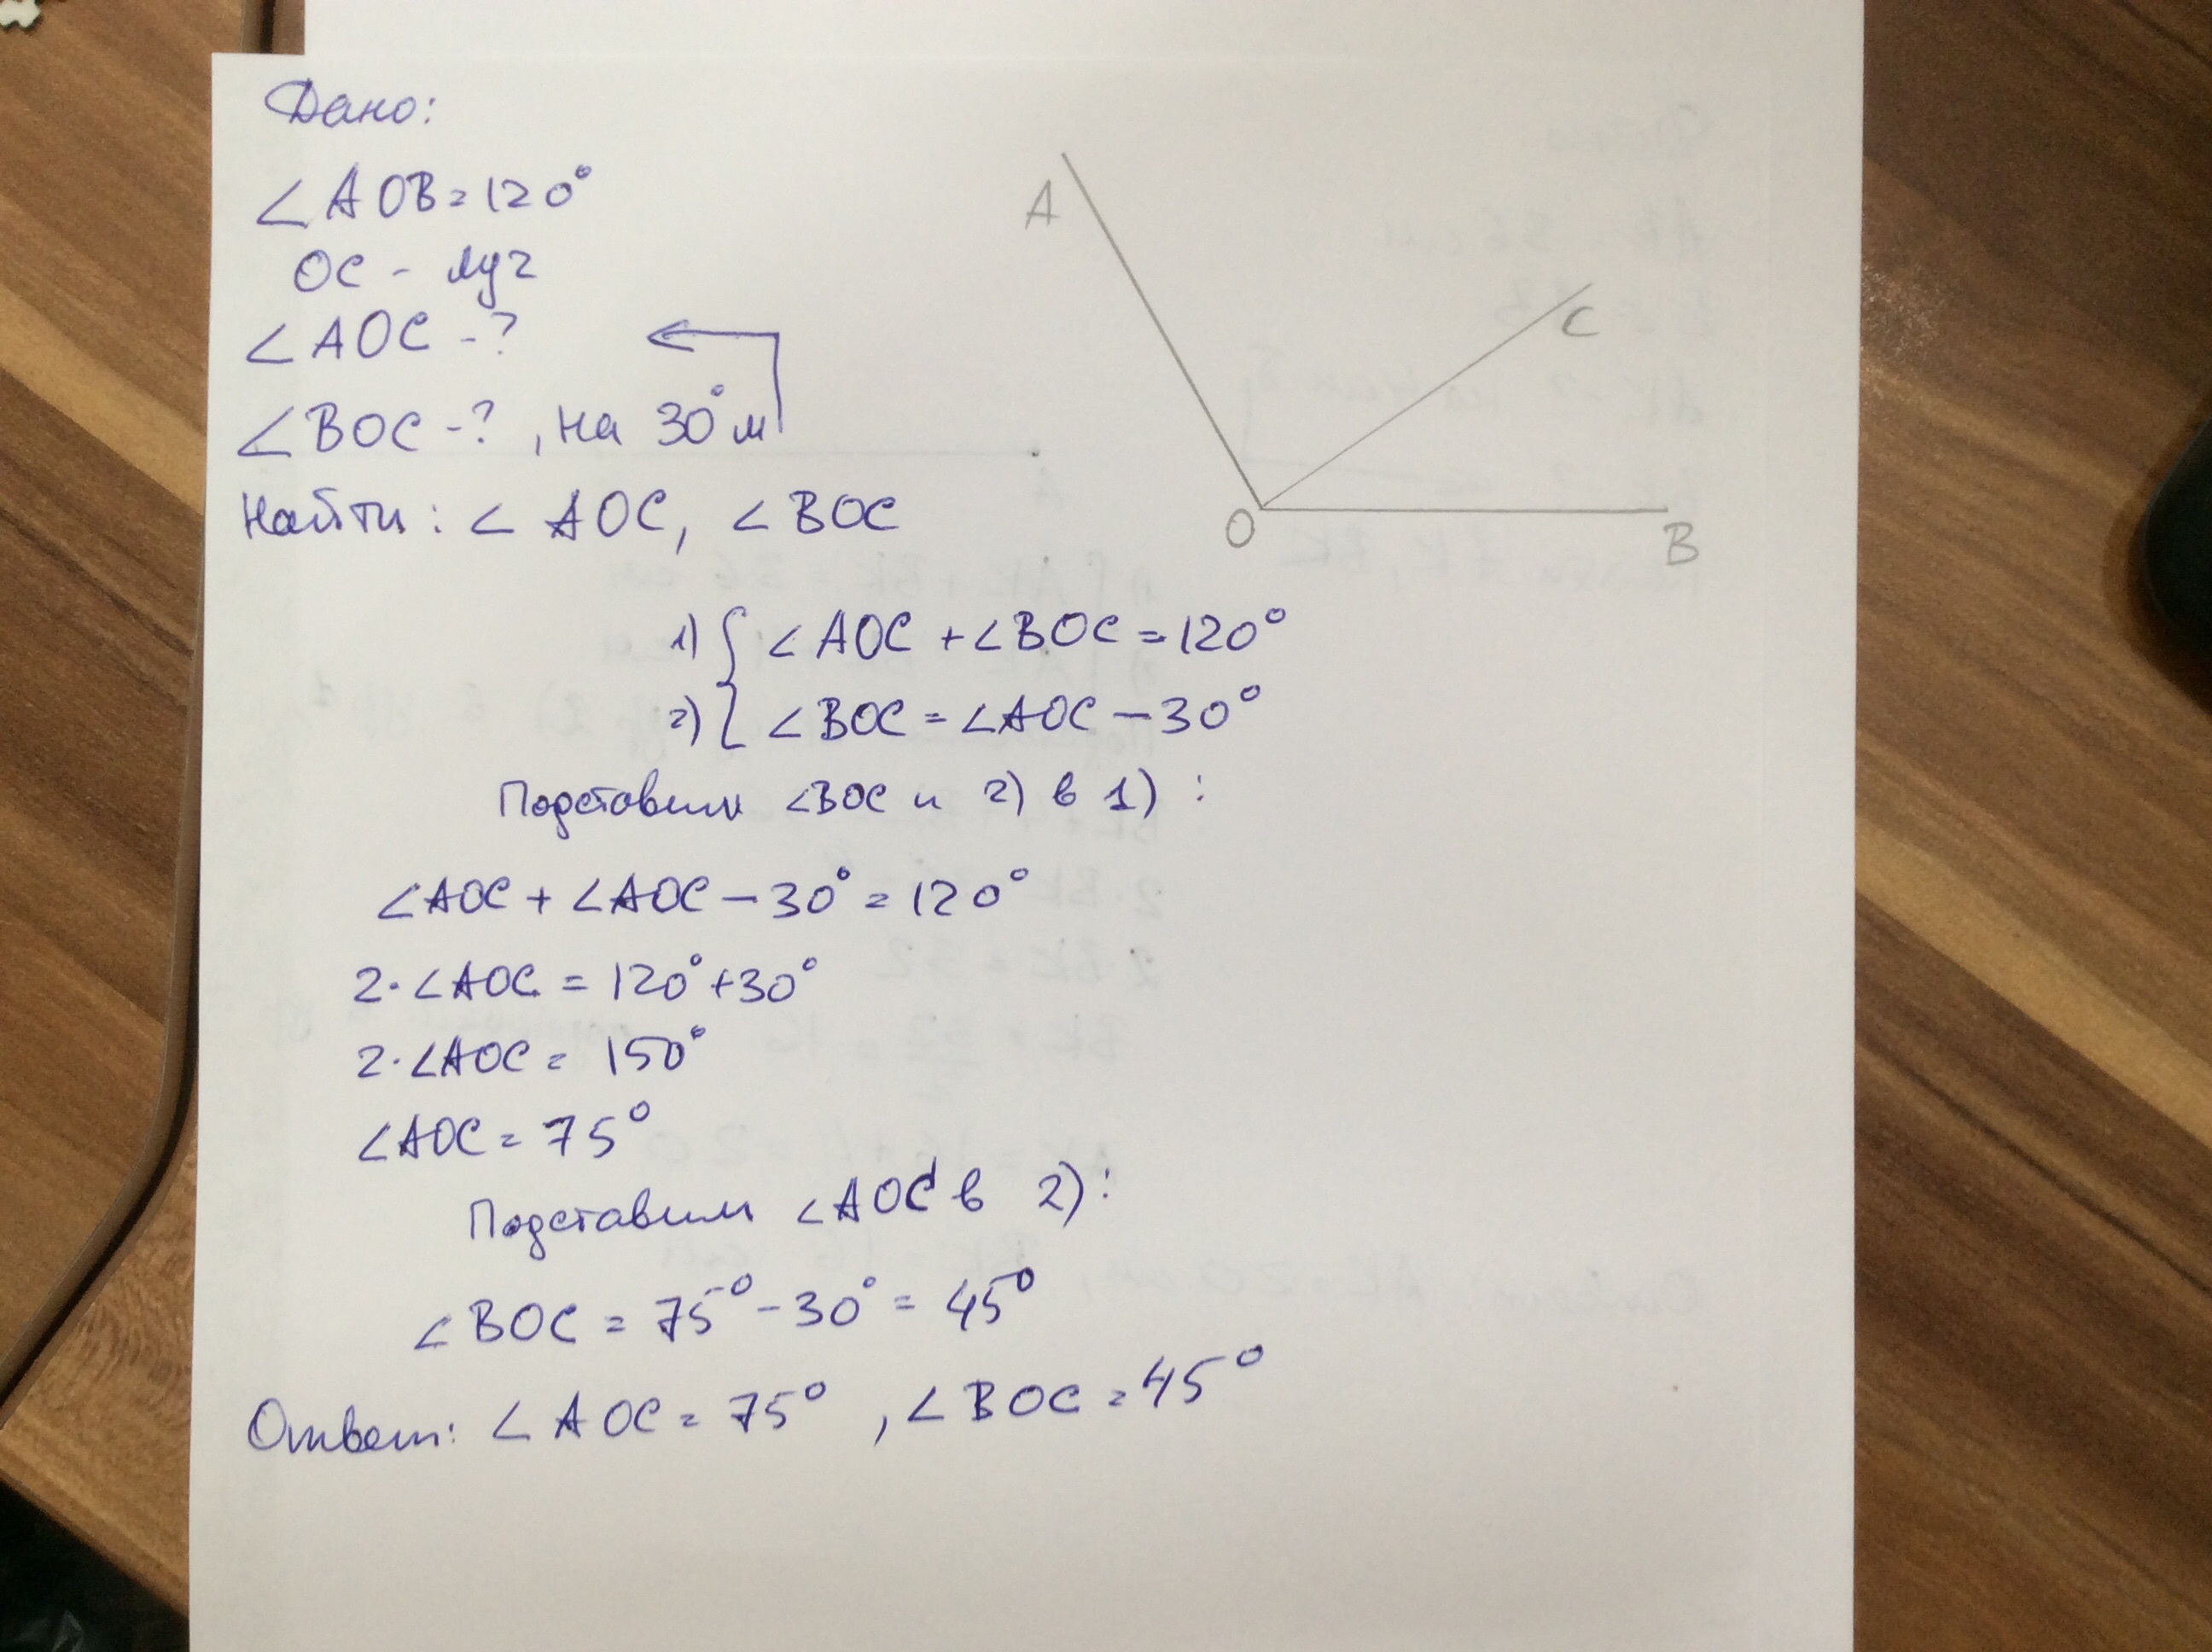 Дано:
∠AOB = 120°
OC - луч
∠AOC - ?
∠BOC - ? , на 30° м
Найти: ∠AOC, ∠BOC
A
C
O
B
1) { ∠AOC + ∠BOC = 120°
2) { ∠BOC = ∠AOC - 30°
Подставим ∠BOC и 2) в 1) :
∠AOC + ∠AOC - 30° = 120°
2·∠AOC = 120° + 30°
2·∠AOC = 150°
∠AOC = 75°
Подставим ∠AOC в 2):
∠BOC = 75° - 30° = 45°
Ответ: ∠AOC = 75° , ∠BOC = 45°